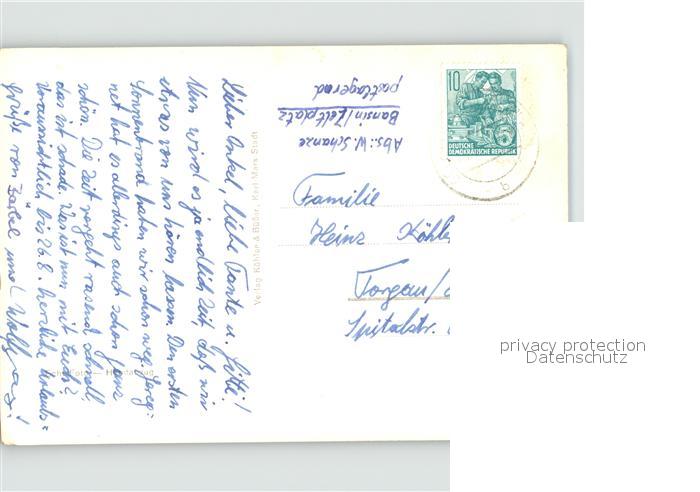 Lieber Onkel, liebe Tante u. Gitti!
Nun wird es ja endlich Zeit, daß wir
etwas von uns hören lassen. Den ersten
Sonnenbrand haben wir schon weg. Gereg=
net hat es allerdings auch schon ganz
schön. Die Zeit vergeht rasend schnell
das ist schade. Was ist nun mit Euch?
Voraussichtlich bis 26.8. herzliche Urlaubs=
grüße von Bärbel und Wolfgang!
Verlag Köhler & Büßer, Karl-Marx-Stadt
Abs.: W. Schanze
Bansin/Zeltplatz
postlagernd
10
DEUTSCHE
DEMOKRATISCHE REPUBLIK
b
Familie
Heinz Köhle
Torgau/
Spitalstr.
privacy protection
Datenschutz